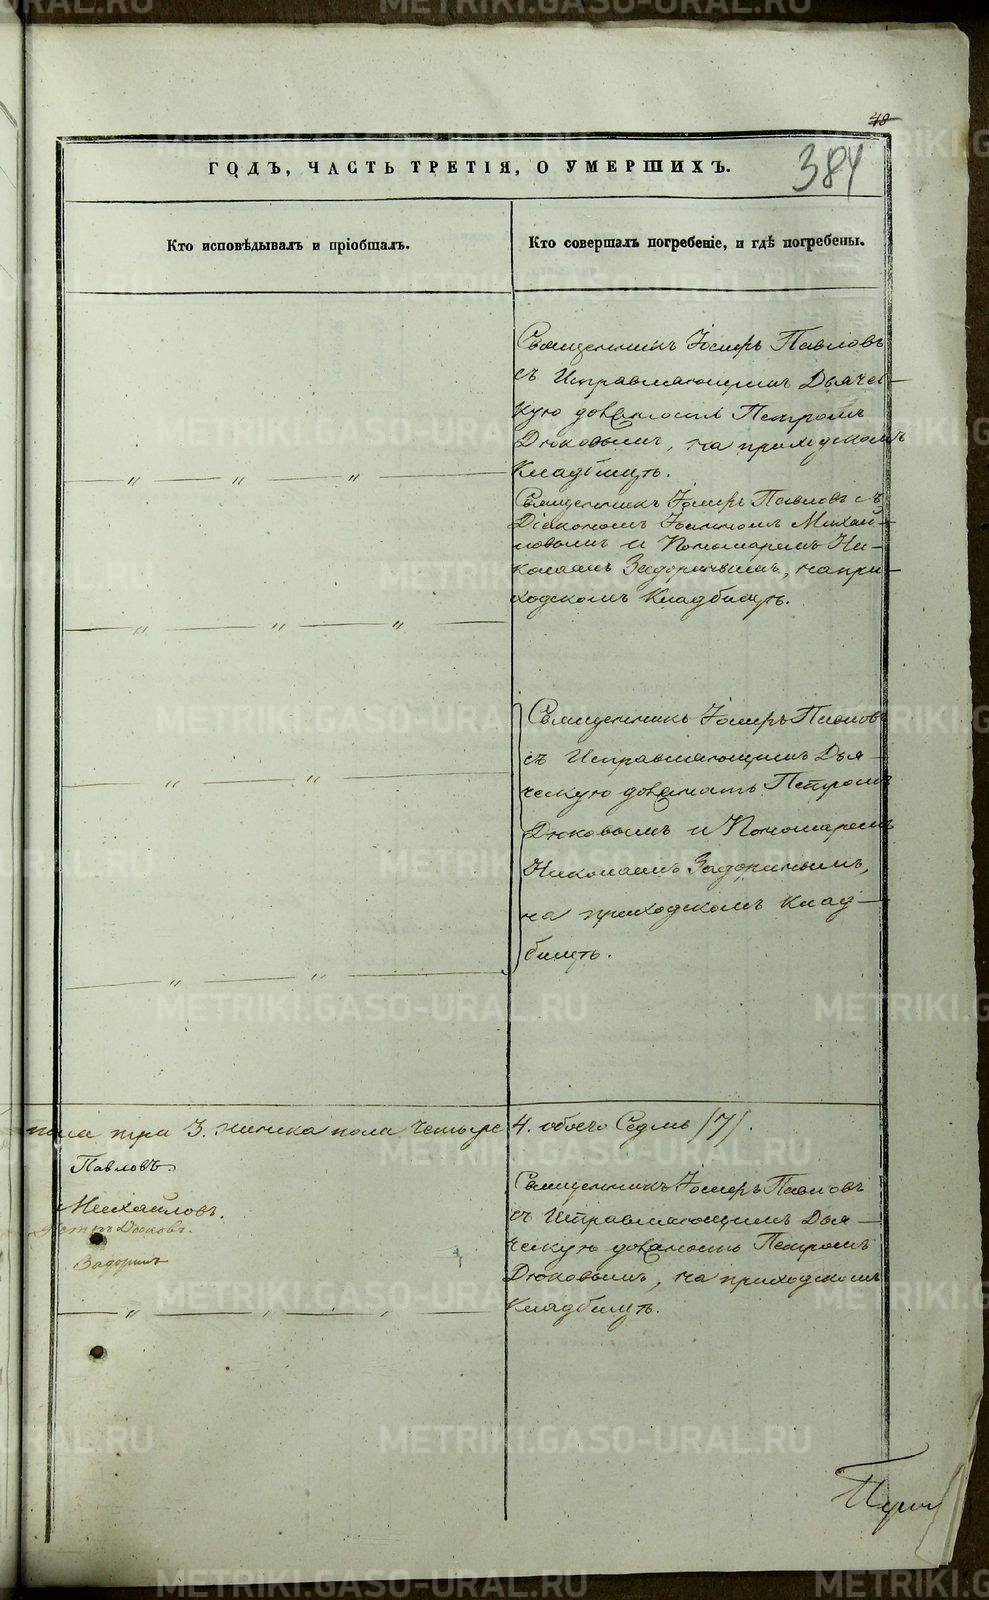 48
384
ГОДЪ, ЧАСТЬ ТРЕТІЯ, О УМЕРШИХЪ.
Кто исповѣдывалъ и пріобщалъ.
Кто совершалъ погребеніе, и гдѣ погребены.
Священникъ Іосифъ Павловъ
съ Исправляющимъ Дьяче-
кую должность Петромъ
Дюковымъ, на приходскомъ
Кладбищѣ.
Священникъ Іосифъ Павловъ съ
Діакономъ Іоанномъ Михай-
ловымъ и Пономаремъ Ни-
колаемъ Задоринымъ, на при-
ходскомъ Кладбищѣ.
Священникъ Іосифъ Павловъ
съ Исправляющимъ Дья-
ческую должность Петромъ
Дюковымъ и Пономаремъ
Николаемъ Задоринымъ,
на приходскомъ Клад-
бищѣ.
пола три 3. женска пола четыре 4. обоего Седмь /7/.
Павловъ.
Михайловъ.
Петръ Дюковъ.
Задоринъ
Священникъ Іосифъ Павловъ
съ Исправляющимъ Дья-
ческую должность Петромъ
Дюковымъ, на приходскомъ
Кладбищѣ.
METRIKI.GASO-URAL.RU